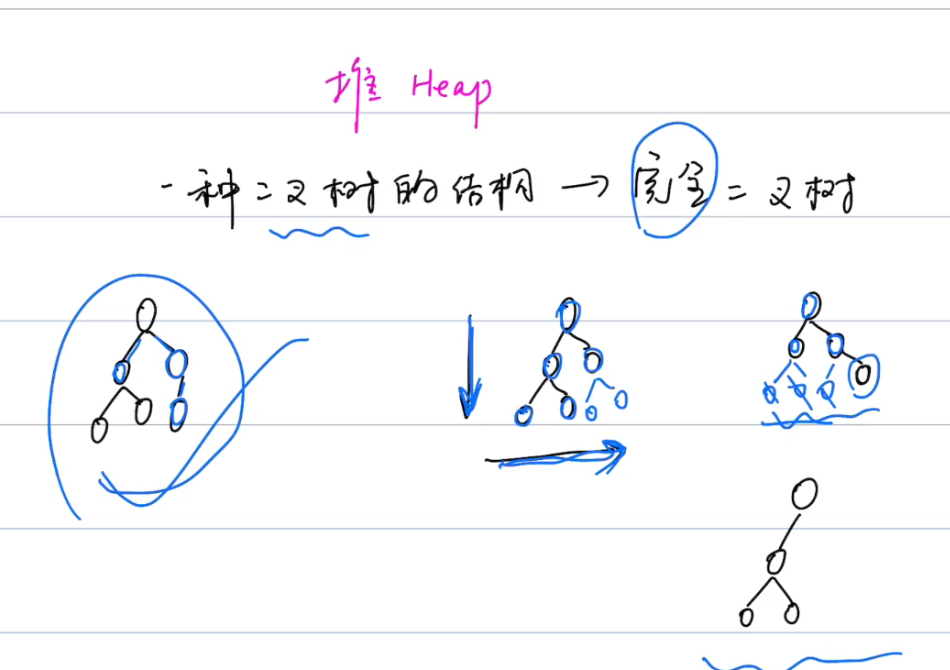 堆 Heap
一种二叉树的结构 → 完全二叉树